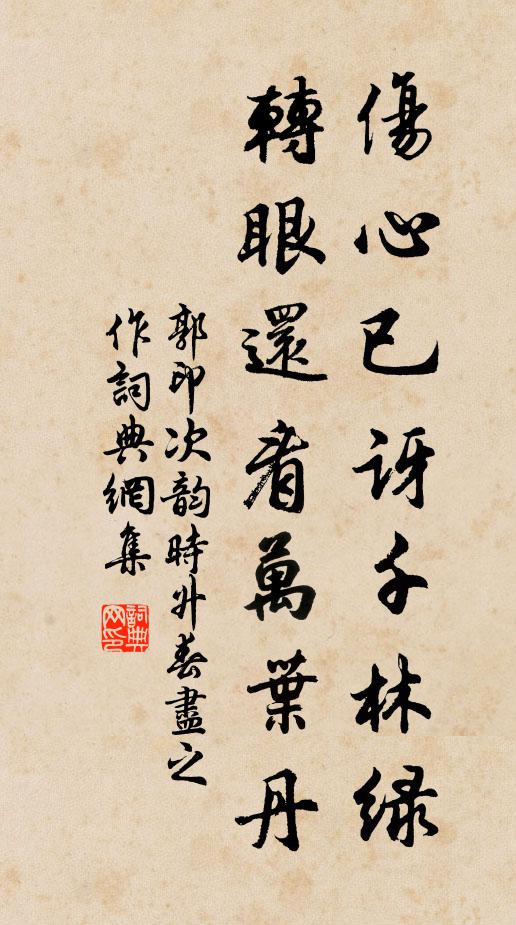 傷心已訝千林綠
轉眼還看萬葉丹
郭印次韵時升春盡之
作詞典網集
詞典网印